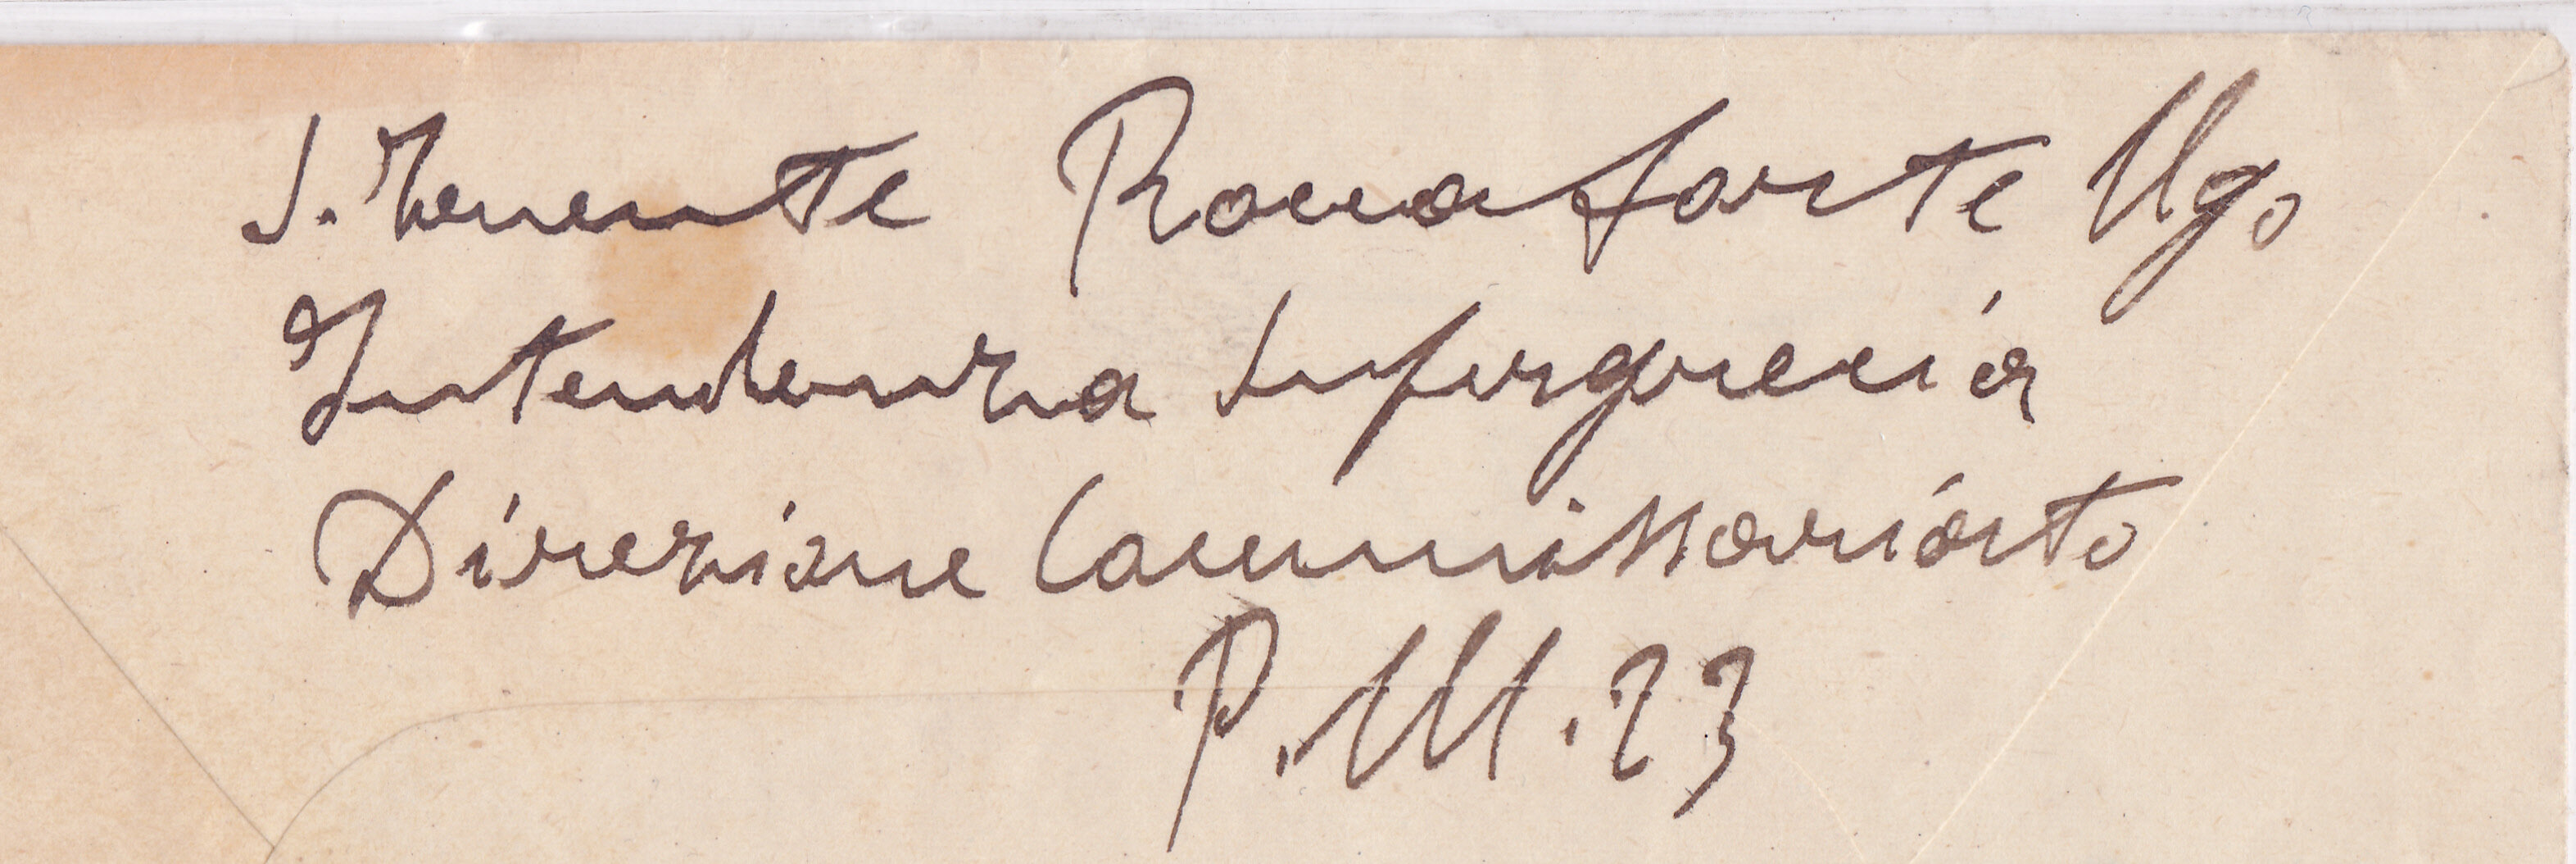 S. Tenente Roccaforte Ugo
Intendenza Supergrecia
Direzione Commissariato
P.M. 23